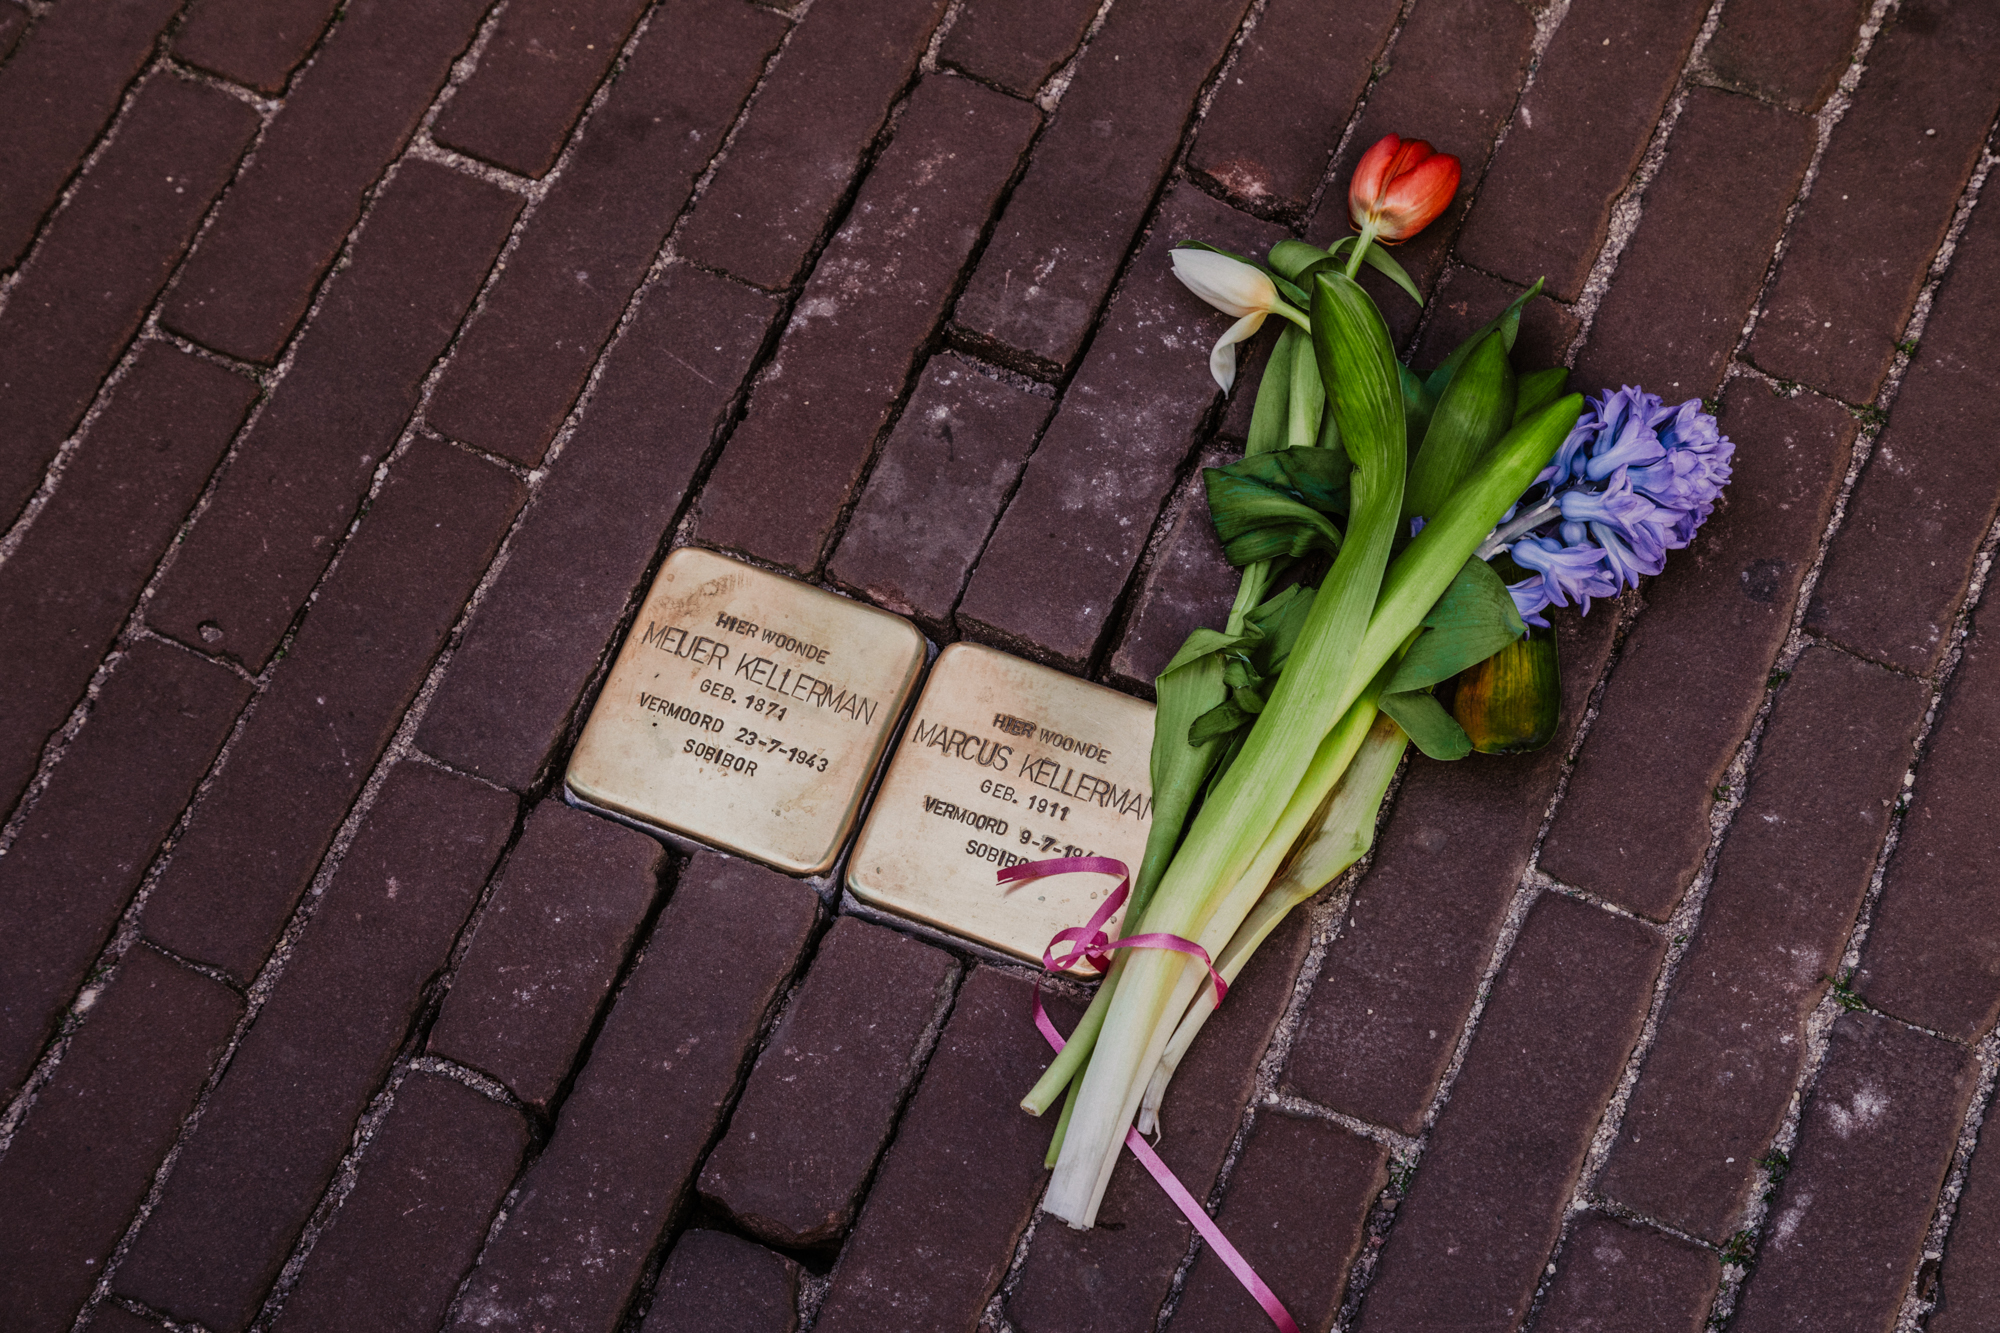 HIER WOONDE
MEIJER KELLERMAN
GEB. 1871
VERMOORD 23-7-1943
SOBIBOR
HIER WOONDE
MARCUS KELLERMAN
GEB. 1911
VERMOORD 9-7-194
SOBIBO